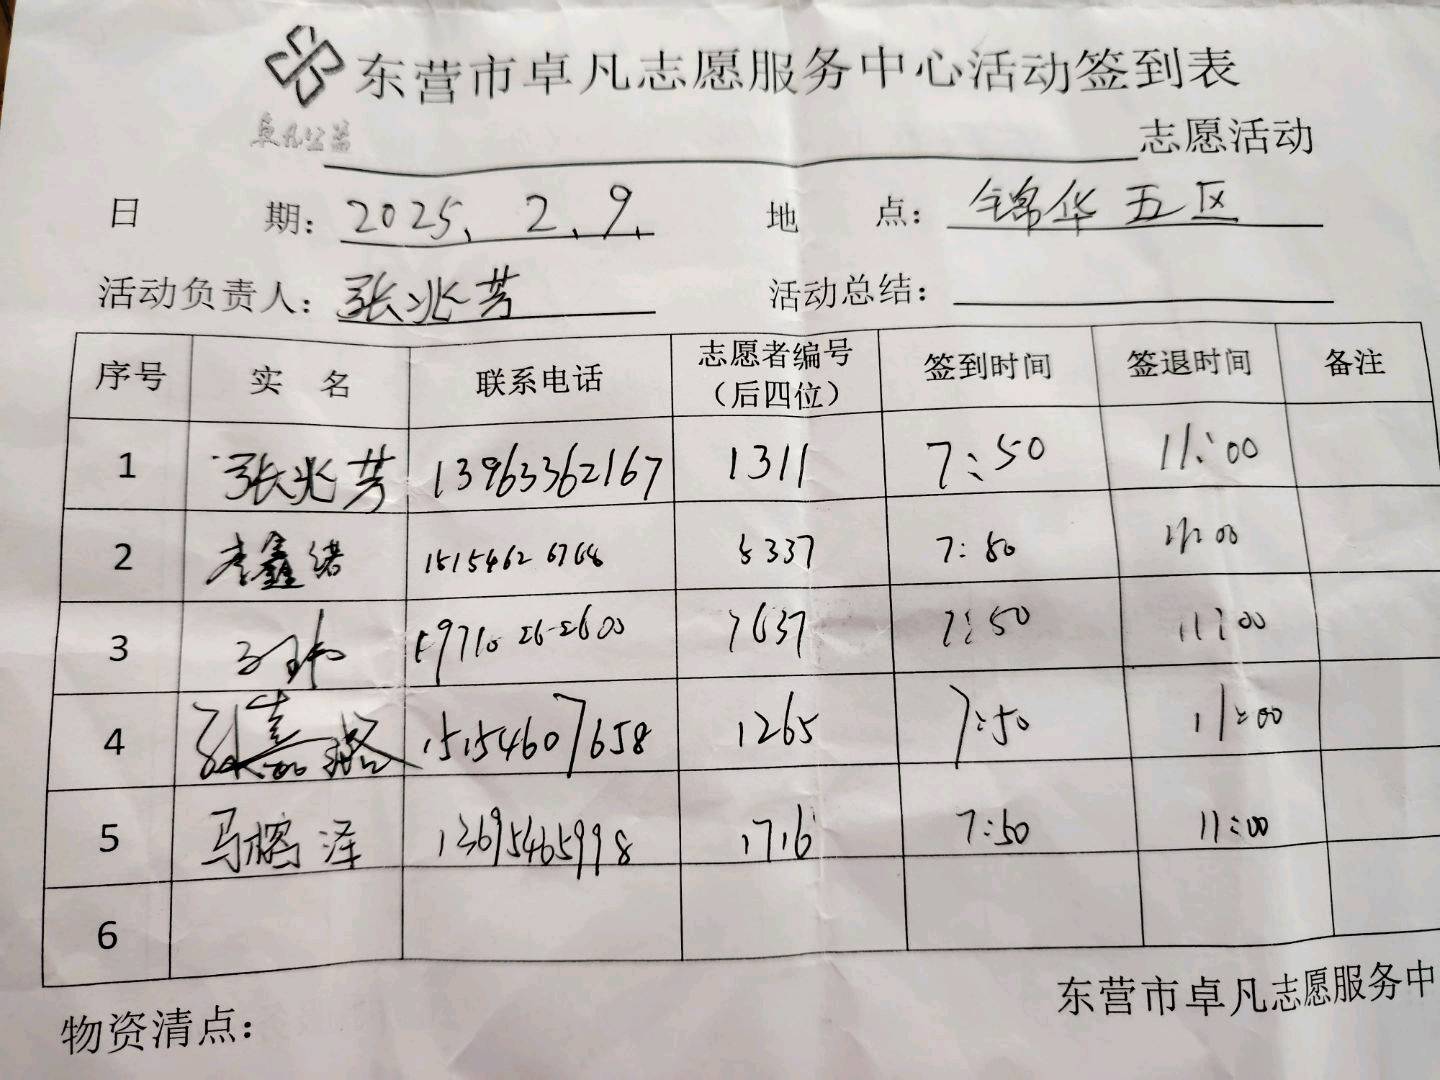 东营市卓凡志愿服务中心活动签到表
卓凡公益
志愿活动
日 期：2025、2、9、 地 点：锦华五区
活动负责人：张兆芳 活动总结：
序号 实 名 联系电话 志愿者编号（后四位） 签到时间 签退时间 备注
1 张兆芳 13963362167 1311 7:50 11:00
2 李鑫绪 15154626768 5337 7:50 11:00
3 7637 7:50 11:00
4 张嘉 15154607658 1265 7:50 11:00
5 马榕泽 13695465998 1716 7:50 11:00
6
物资清点：
东营市卓凡志愿服务中